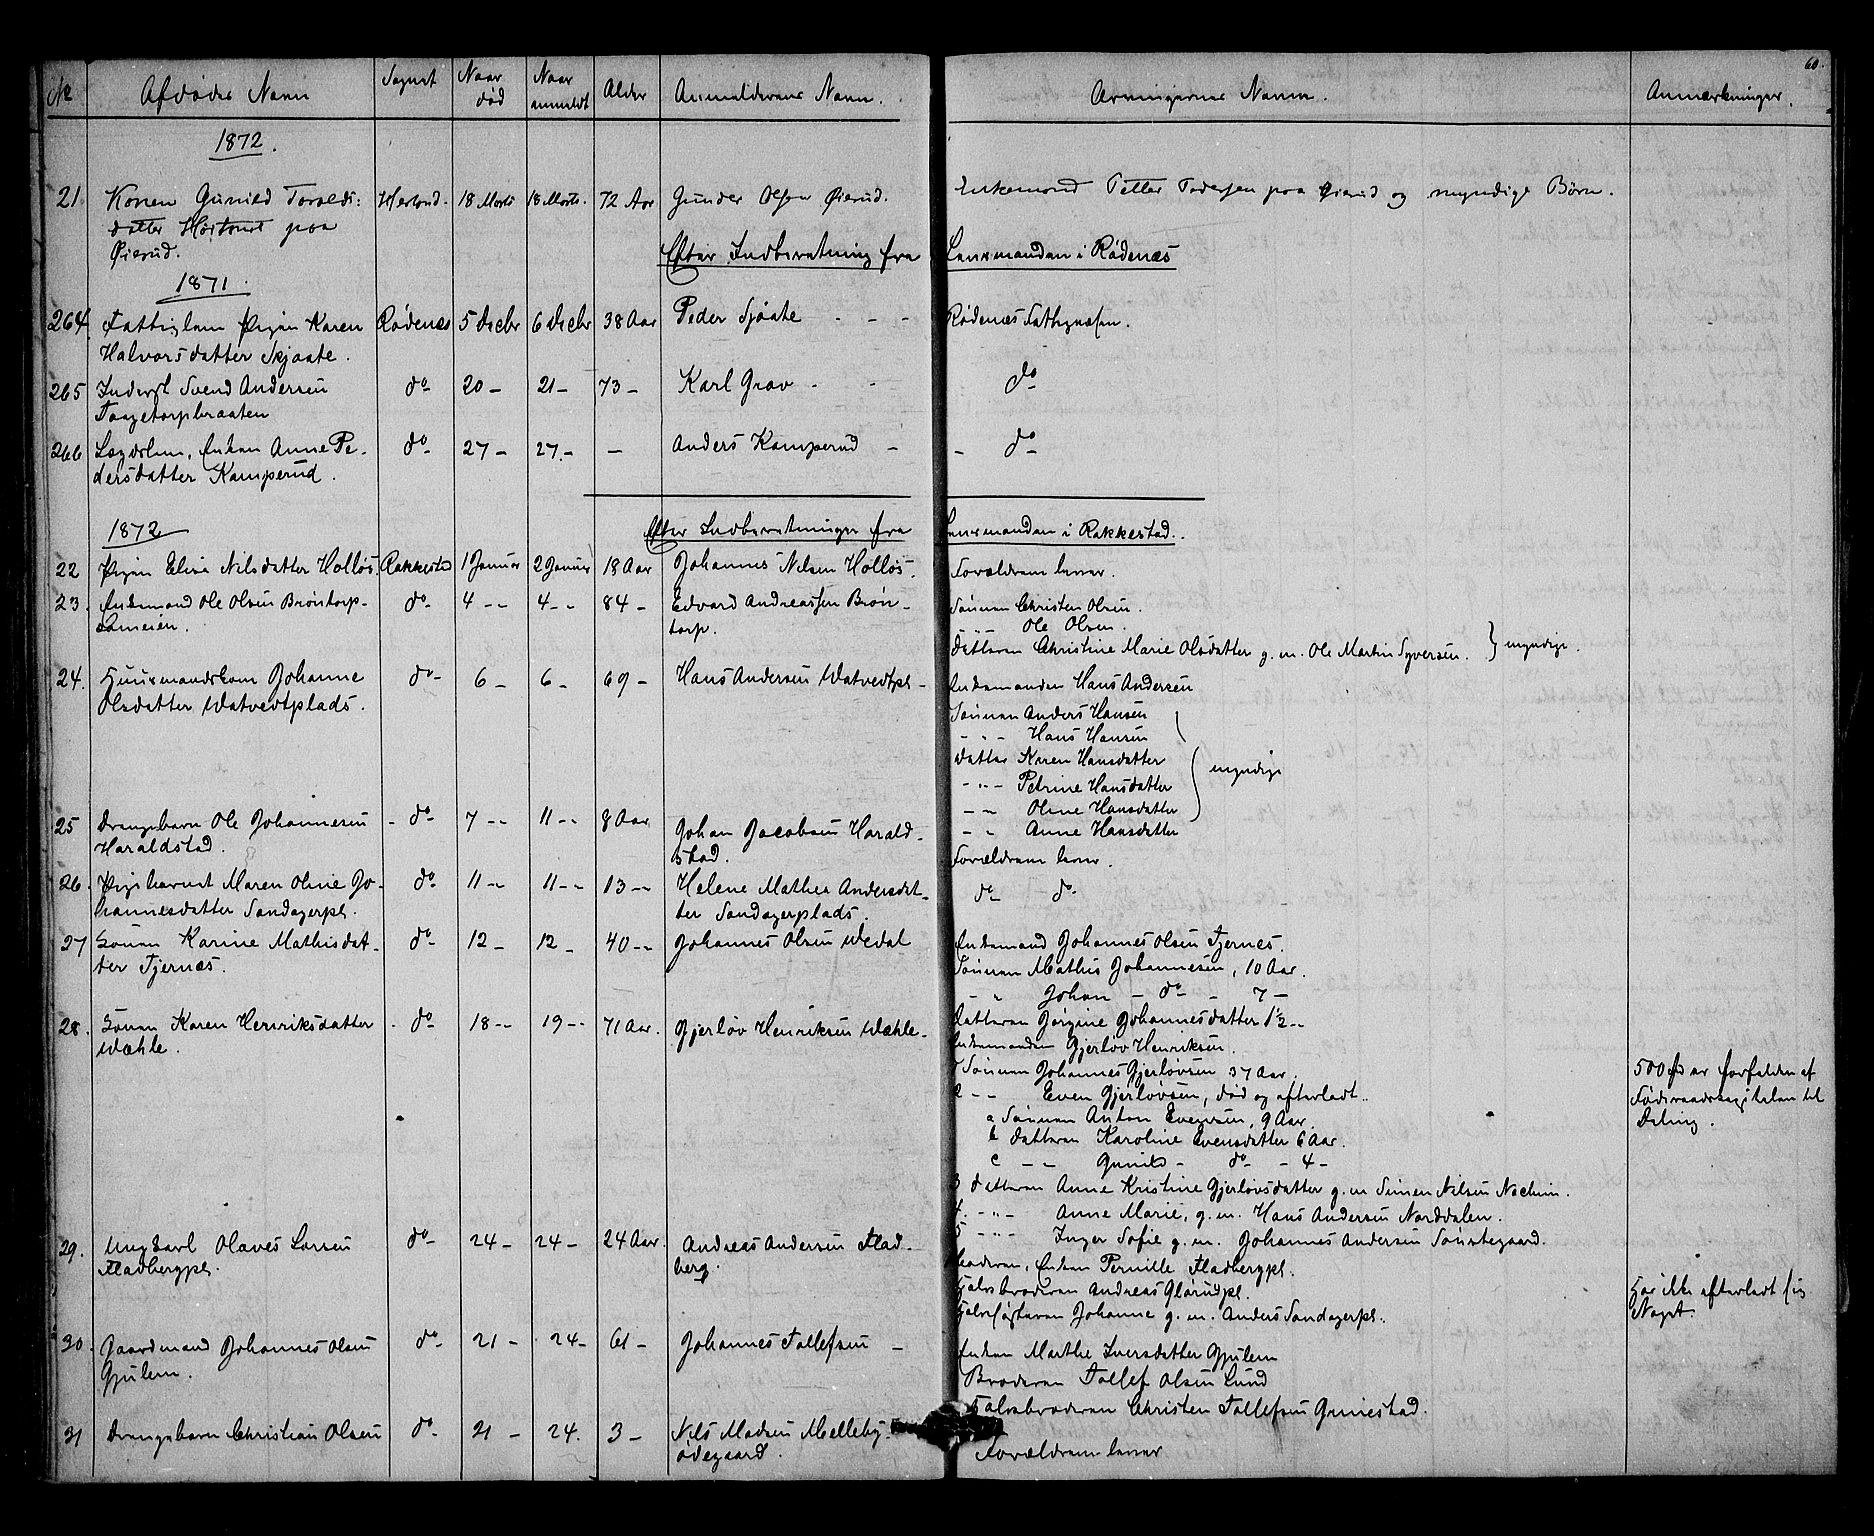 60.
No Afdødes Navn Sognet Naar død Naar anmeldt Alder Anmelderens Navn. Arvingernes Navne. Anmærkninger.
1872.
21 Konen Gunild Toralds- Herland 18 Marts 18 Marts 72 Aar Gunder Olsen Øierud. Enkemand Petter Pedersen paa Øierud og myndige Børn.
datter paa
Øierud.
Efter Indberetning fra Lensmanden i Rødenæs
1871.
264 Fattiglem Pigen Karen Rødenæs 5 decbr 6 decbr 38 Aar Peder Sjøate - - - Rødenæs Fattigvæsen.
Halvorsdatter Skjaate.
265 Inderst Svend Andersen do 20 - 21 - 73 - Karl Grav - - do
Taagetorpbraaten
266 Lægdslem, Enken Anne Pe- do 27 - 27. - - Anders Kamperud - - do
dersdatter Kamperud.
1872 Efter Indberetninger fra Lensmanden i Rakkestad.
22 Pigen Elise Nilsdatter Holløs Rakkestad 1 Januar 2 Januar 18 Aar Johannes Nilsen Holløs. Forældrene lever.
23. Enkemand Ole Olsen Brøntorp- do 4 - - 4 - - 84 - Edvard Andreassen Brøn- Sønnen Christen Olsen.
sameien. torp. - " - Ole Olsen.
datteren Christine Marie Olsdatter g. m. Ole Martin Syversen. } myndige.
24. Huusmandskone Johanne do 6 - 6 - 69 - Hans Andersen Watvedtpl - Enkemanden Hans Andersen
Olsdatter Watvedtplads. Sønnen Anders Hansen
- " - Hans Hansen
datter Karen Hansdatter
- " - Petrine Hansdatter } myndige
- - Oline Hansdatter
- - Anne Hansdatter
25 Drengebarn Ole Johannesen - do 7 - - 11 - - 8 Aar Johan Jacobsen Harald-
Haraldstad. stad. Forældrene lever.
26. Pigebarnet Maren Oline Jo- do 11 - - 11 - - 13 - - Helene Mathea Andersdat- do do
hannesdatter Sandagerpl. ter Sandagerplads.
27 Konen Karine Mathisdat- do 12 - 12 - 40 - - Johannes Olsen Wedal Enkemand Johannes Olsen Tjernes.
ter Tjernæs. Sønnen Mathis Johannesen, 10 Aar.
- " Johan - do - 7 -
28. Konen Karen Henriksdatter - do 18 - - 19 - - 71 Aar. Gjerløv Henriksen Wæhle. datteren Jørgine Johannesdatter 1½ - -
Wæhle. Enkemanden Gjerløv Henriksen.
1 Sønnen Johannes Gjerløvsen 37 Aar. 500 Spd er forfalden af
2 - - Even Gjerløvsen, død og efterladt.. Føderaadskapitalen til
a Sønnen Anton Evensen, 9 Aar. Deling.
b datteren Karoline Evensdatter 6 Aar.
c - - Gunild - do - 4 -
3 datteren Anne Kristine Gjerløvsdatter g. m Simen Nilsen
4. - " - Anne Marie, g. m. Hans Andersen Norddalen.
5 - " - Inger Sofie g. m. Johannes Andersen Sønstegaard.
29. Ungkarl Olaves Larsen do 24 - 24 - 24 Aar. Andreas Andersen Flad- Moderen, Enken Pernille Fladbergpl.
Fladbergpl. berg. Halvbroderen Andreas Glørudpl. Har ikke efterladt sig
Halvsøsteren Johanne g. m. Anders Sandagerpl. Noget.
30. Gaardmand Johannes Olsen do 21 - 24 - 61 - Johannes Tollefsen - Enken Marthe Iversdatter Gjulem
Gjulem. Broderen Tollef Olsen Lund
Halvbroderen Christen Tollefsen Gunestad.
31 Drengebarn Christian Olsen do 21 - 24. 3 - Nils Madsen Melleby- Forældrene lever
ødegaard.